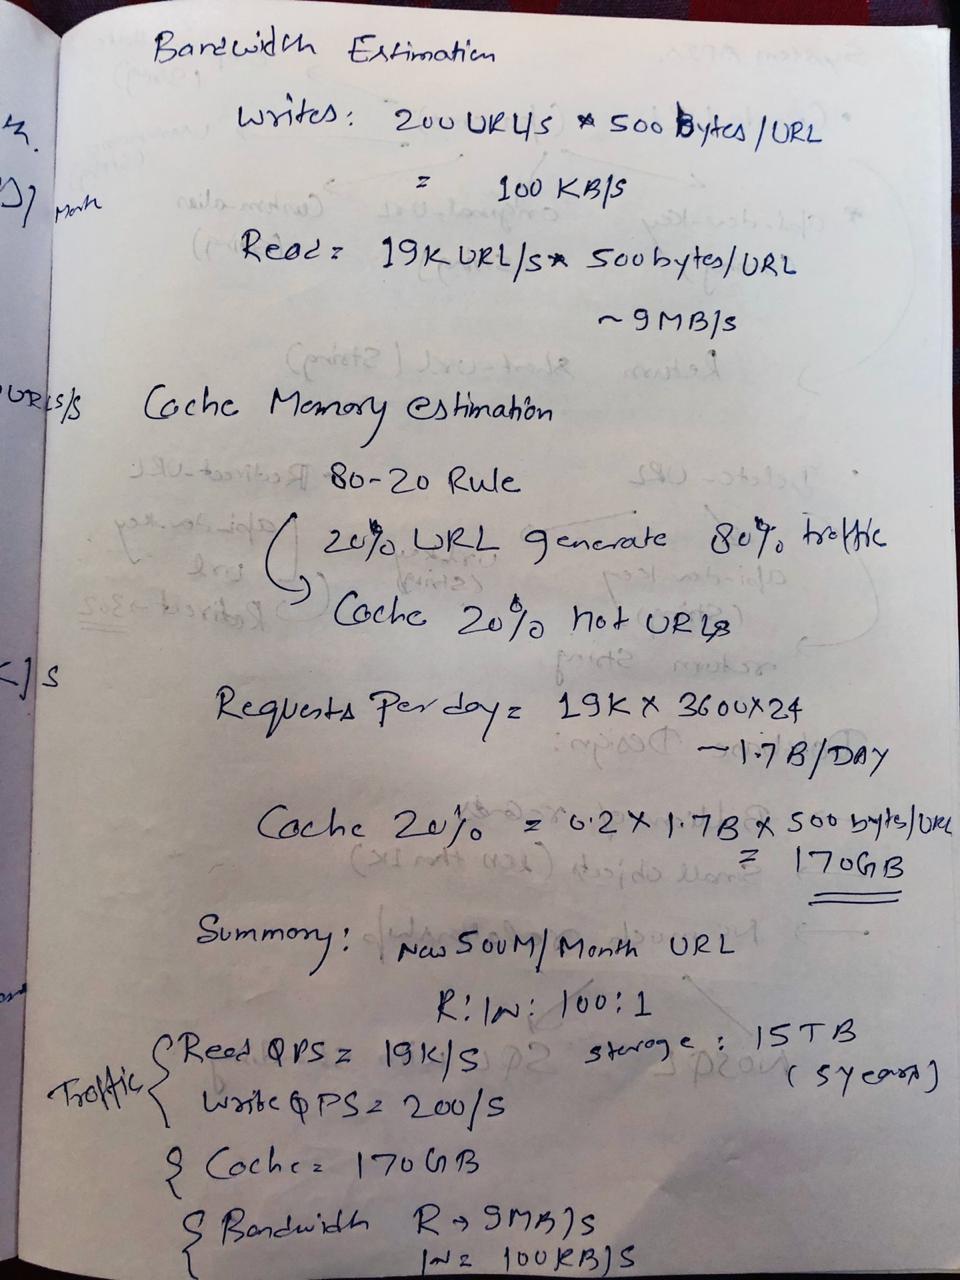 Bandwidth Estimation
Writes: 200 URL/S * 500 Bytes/URL
= 100 KB/S
Read = 19K URL/S * 500 bytes/URL
~ 9 MB/S
URLS/S
Cache Memory estimation
80-20 Rule
20% URL generate 80% traffic
Cache 20% hot URLs
K/S
Requests Per day = 19K X 3600X24
~1.7 B/DAY
Cache 20% = 0.2 X 1.7B X 500 bytes/URL
= 170GB
Summary: New 500M/Month URL
R:W: 100:1
Traffic { Read QPS = 19K/S storage: 15TB
(5 years)
Write QPS = 200/S
{ Cache = 170GB
{ Bandwidth R → 9MB/S
W = 100KB/S